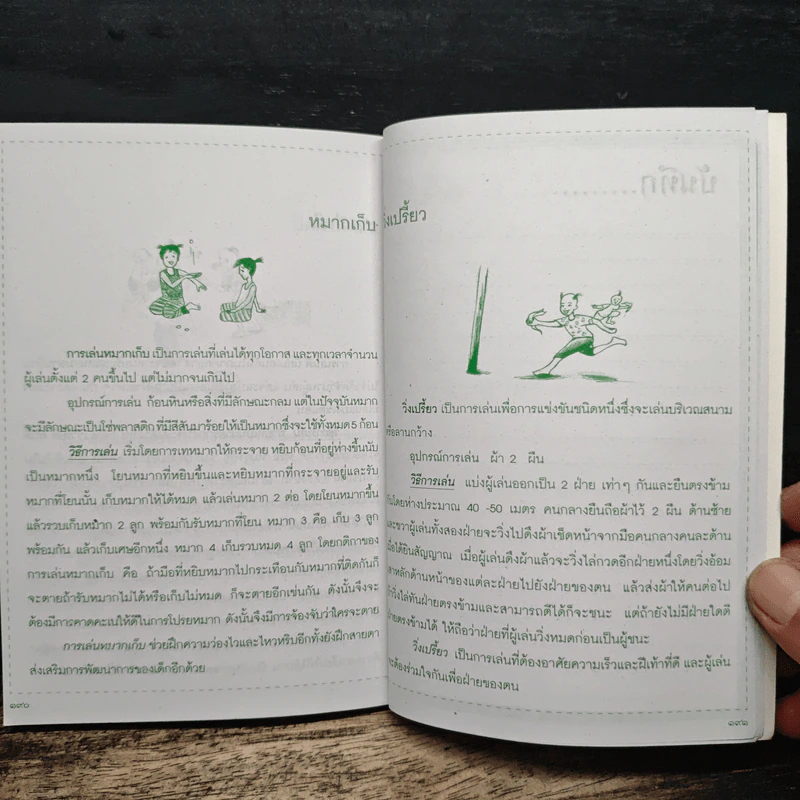 หมากเก็บ-วิ่งเปรี้ยว
การเล่นหมากเก็บ เป็นการเล่นที่เล่นได้ทุกโอกาส และทุกเวลาจำนวน
ผู้เล่นตั้งแต่ 2 คนขึ้นไป แต่ไม่มากจนเกินไป
อุปกรณ์การเล่น ก้อนหินหรือสิ่งที่มีลักษณะกลม แต่ในปัจจุบันหมาก
จะมีลักษณะเป็นโซ่พลาสติกที่มีสีสันมาร้อยให้เป็นหมากซึ่งจะใช้ทั้งหมด 5 ก้อน
วิธีการเล่น เริ่มโดยการเทหมากให้กระจาย หยิบก้อนที่อยู่ห่างขึ้นนับ
เป็นหมากหนึ่ง โยนหมากที่หยิบขึ้นและหยิบหมากที่กระจายอยู่และรับ
หมากที่โยนนั้น เก็บหมากให้ได้หมด แล้วเล่นหมาก 2 ต่อ โดยโยนหมากขึ้น
แล้วรวบเก็บหมาก 2 ลูก พร้อมกับรับหมากที่โยน หมาก 3 คือ เก็บ 3 ลูก
พร้อมกัน แล้วเก็บเศษอีกหนึ่ง หมาก 4 เก็บรวบหมด 4 ลูก โดยกติกาของ
การเล่นหมากเก็บ คือ ถ้ามือที่หยิบหมากไปกระเทือนกับหมากที่ติดกันก็
จะตายถ้ารับหมากไม่ได้หรือเก็บไม่หมด ก็จะตายอีกเช่นกัน ดังนั้นจึงจะ
ต้องมีการคาดคะเนให้ดีในการโปรยหมาก ดังนั้นจึงมีการจ้องจับว่าใครจะตาย
การเล่นหมากเก็บ ช่วยฝึกความว่องไวและไหวพริบอีกทั้งยังฝึกสายตา
ส่งเสริมการพัฒนาการของเด็กอีกด้วย
๑๙๐
วิ่งเปรี้ยว เป็นการเล่นเพื่อการแข่งขันชนิดหนึ่งซึ่งจะเล่นบริเวณสนาม
หรือลานกว้าง
อุปกรณ์การเล่น ผ้า 2 ผืน
วิธีการเล่น แบ่งผู้เล่นออกเป็น 2 ฝ่าย เท่าๆ กันและยืนตรงข้าม
กันโดยห่างประมาณ 40 -50 เมตร คนกลางยืนถือผ้าไว้ 2 ผืน ด้านซ้าย
และขวาผู้เล่นทั้งสองฝ่ายจะวิ่งไปดึงผ้าเช็ดหน้าจากมือคนกลางคนละด้าน
เมื่อได้ยินสัญญาณ เมื่อผู้เล่นดึงผ้าแล้วจะวิ่งไล่กวดอีกฝ่ายหนึ่งโดยวิ่งอ้อม
เสาหลักด้านหน้าของแต่ละฝ่ายไปยังฝ่ายของตน แล้วส่งผ้าให้คนต่อไป
ถ้าวิ่งไล่ทันฝ่ายตรงข้ามและสามารถตีได้ก็จะชนะ แต่ถ้ายังไม่มีฝ่ายใดตี
ฝ่ายตรงข้ามได้ ให้ถือว่าฝ่ายที่ผู้เล่นวิ่งหมดก่อนเป็นผู้ชนะ
วิ่งเปรี้ยว เป็นการเล่นที่ต้องอาศัยความเร็วและฝีเท้าที่ดี และผู้เล่น
จะต้องร่วมใจกันเพื่อฝ่ายของตน
๑๙๑